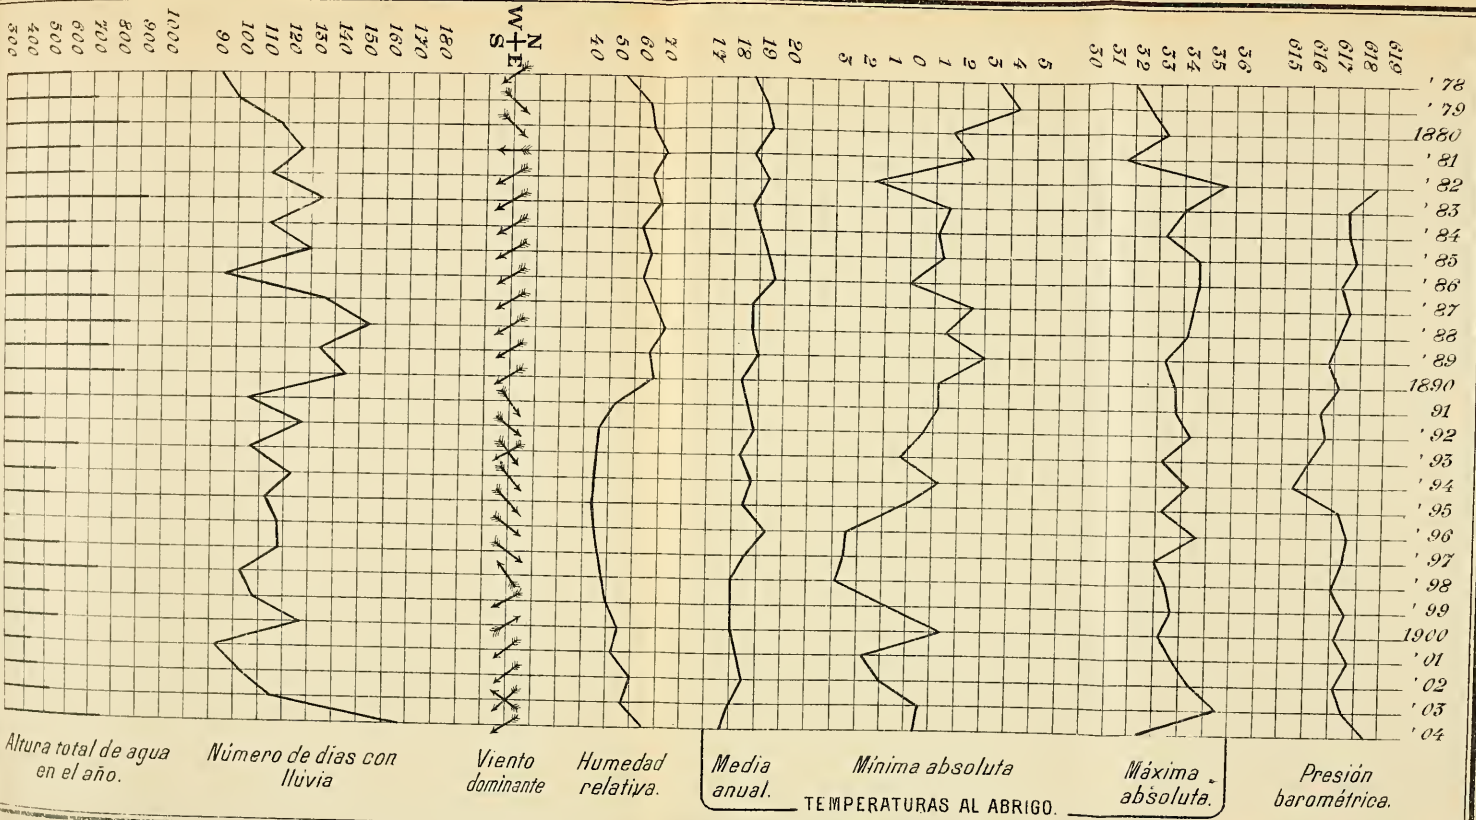 300 400 500 600 700 800 900 1000
90 100 110 120 130 140 150 160 170 180
N
W E
S
40 50 60 70
17 18 19 20
3 2 1 0 1 2 3 4 5
30 31 32 33 34 35 36
615 616 617 618 619
' 78
' 79
1880
' 81
' 82
' 83
' 84
' 85
' 86
' 87
' 88
' 89
1890
91
' 92
' 93
' 94
' 95
' 96
' 97
' 98
' 99
1900
' 01
' 02
' 03
' 04
Altura total de agua
en el año.
Número de días con
llúvia
Viento
dominante
Humedad
relativa.
Media
anual.
Mínima absoluta
Máxima
absoluta.
TEMPERATURAS AL ABRIGO.
Presión
barométrica.